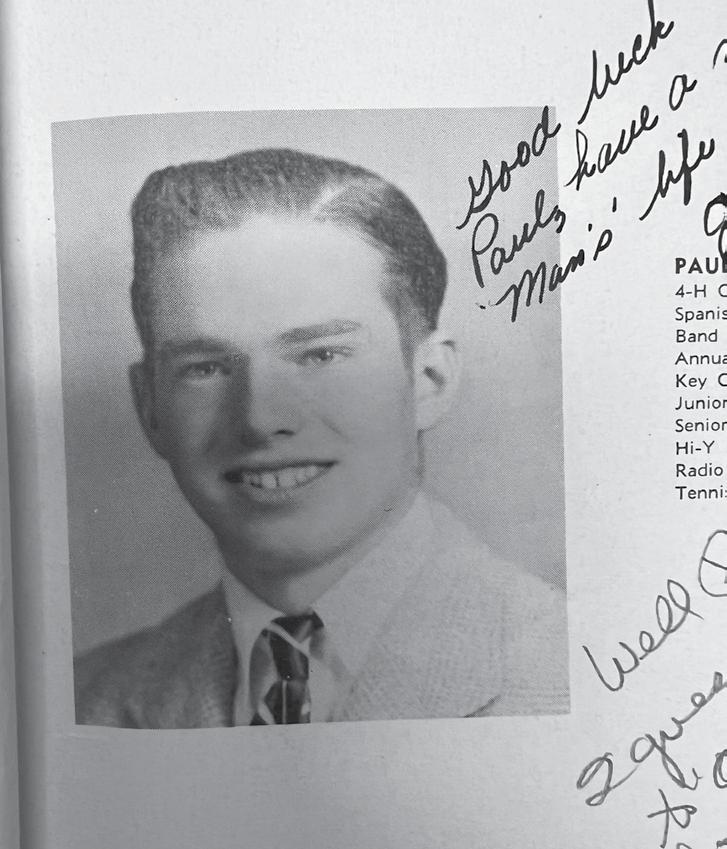 Good luck
Paul, have a
"Man's" life
PAUL
4-H C
Spanis
Band
Annua
Key C
Junior
Senior
Hi-Y
Radio
Tennis
Well P
I guess
to